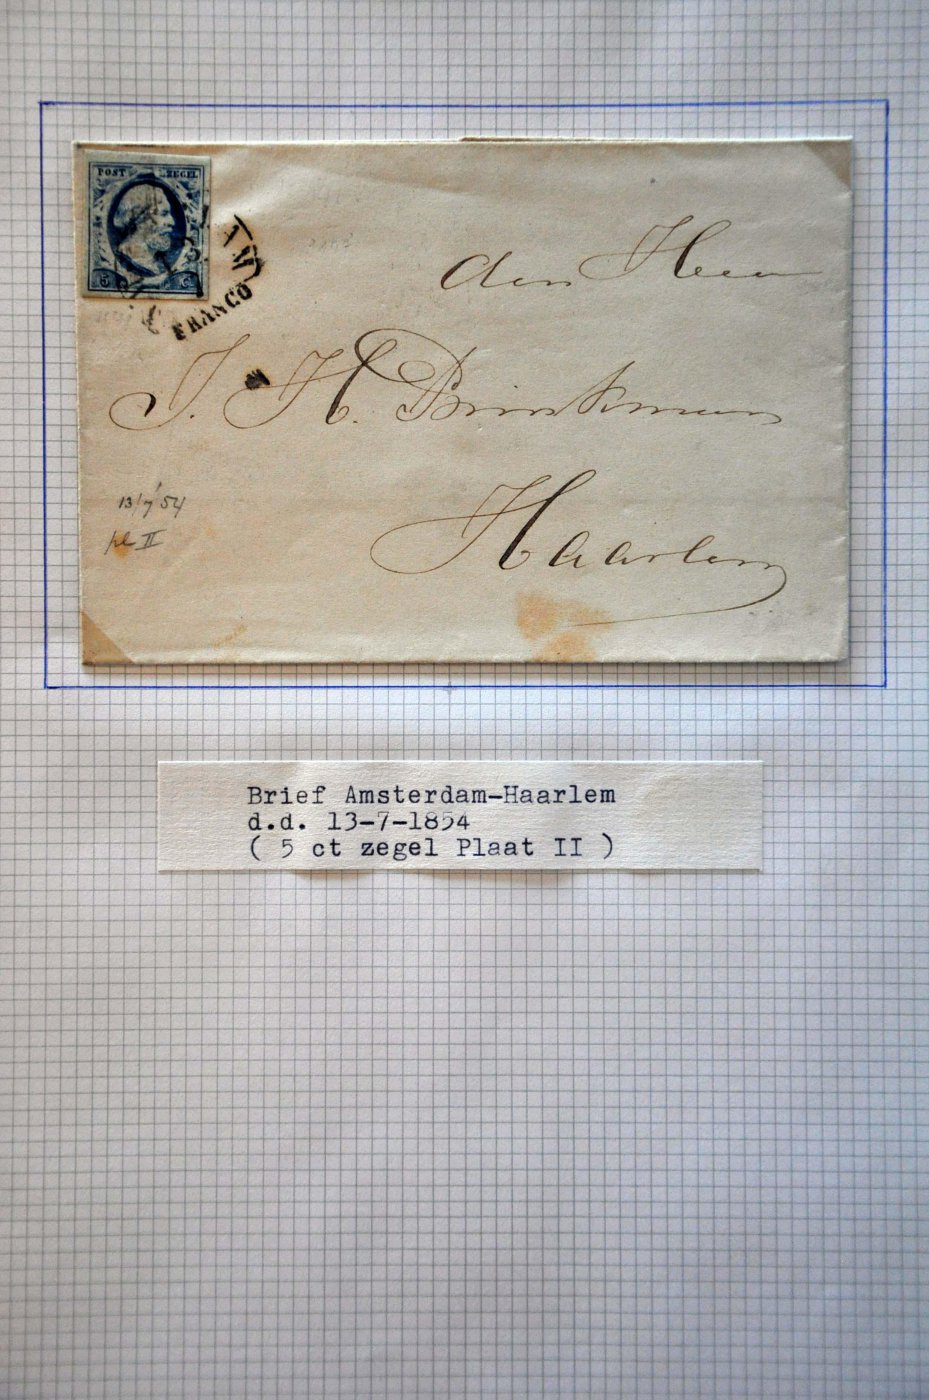 POST ZEGEL
5 C
FRANCO
den Heer
J. H. Brinkman
Haarlem
13/7 '54
pl II
Brief Amsterdam-Haarlem
d.d. 13-7-1854
( 5 ct zegel Plaat II )